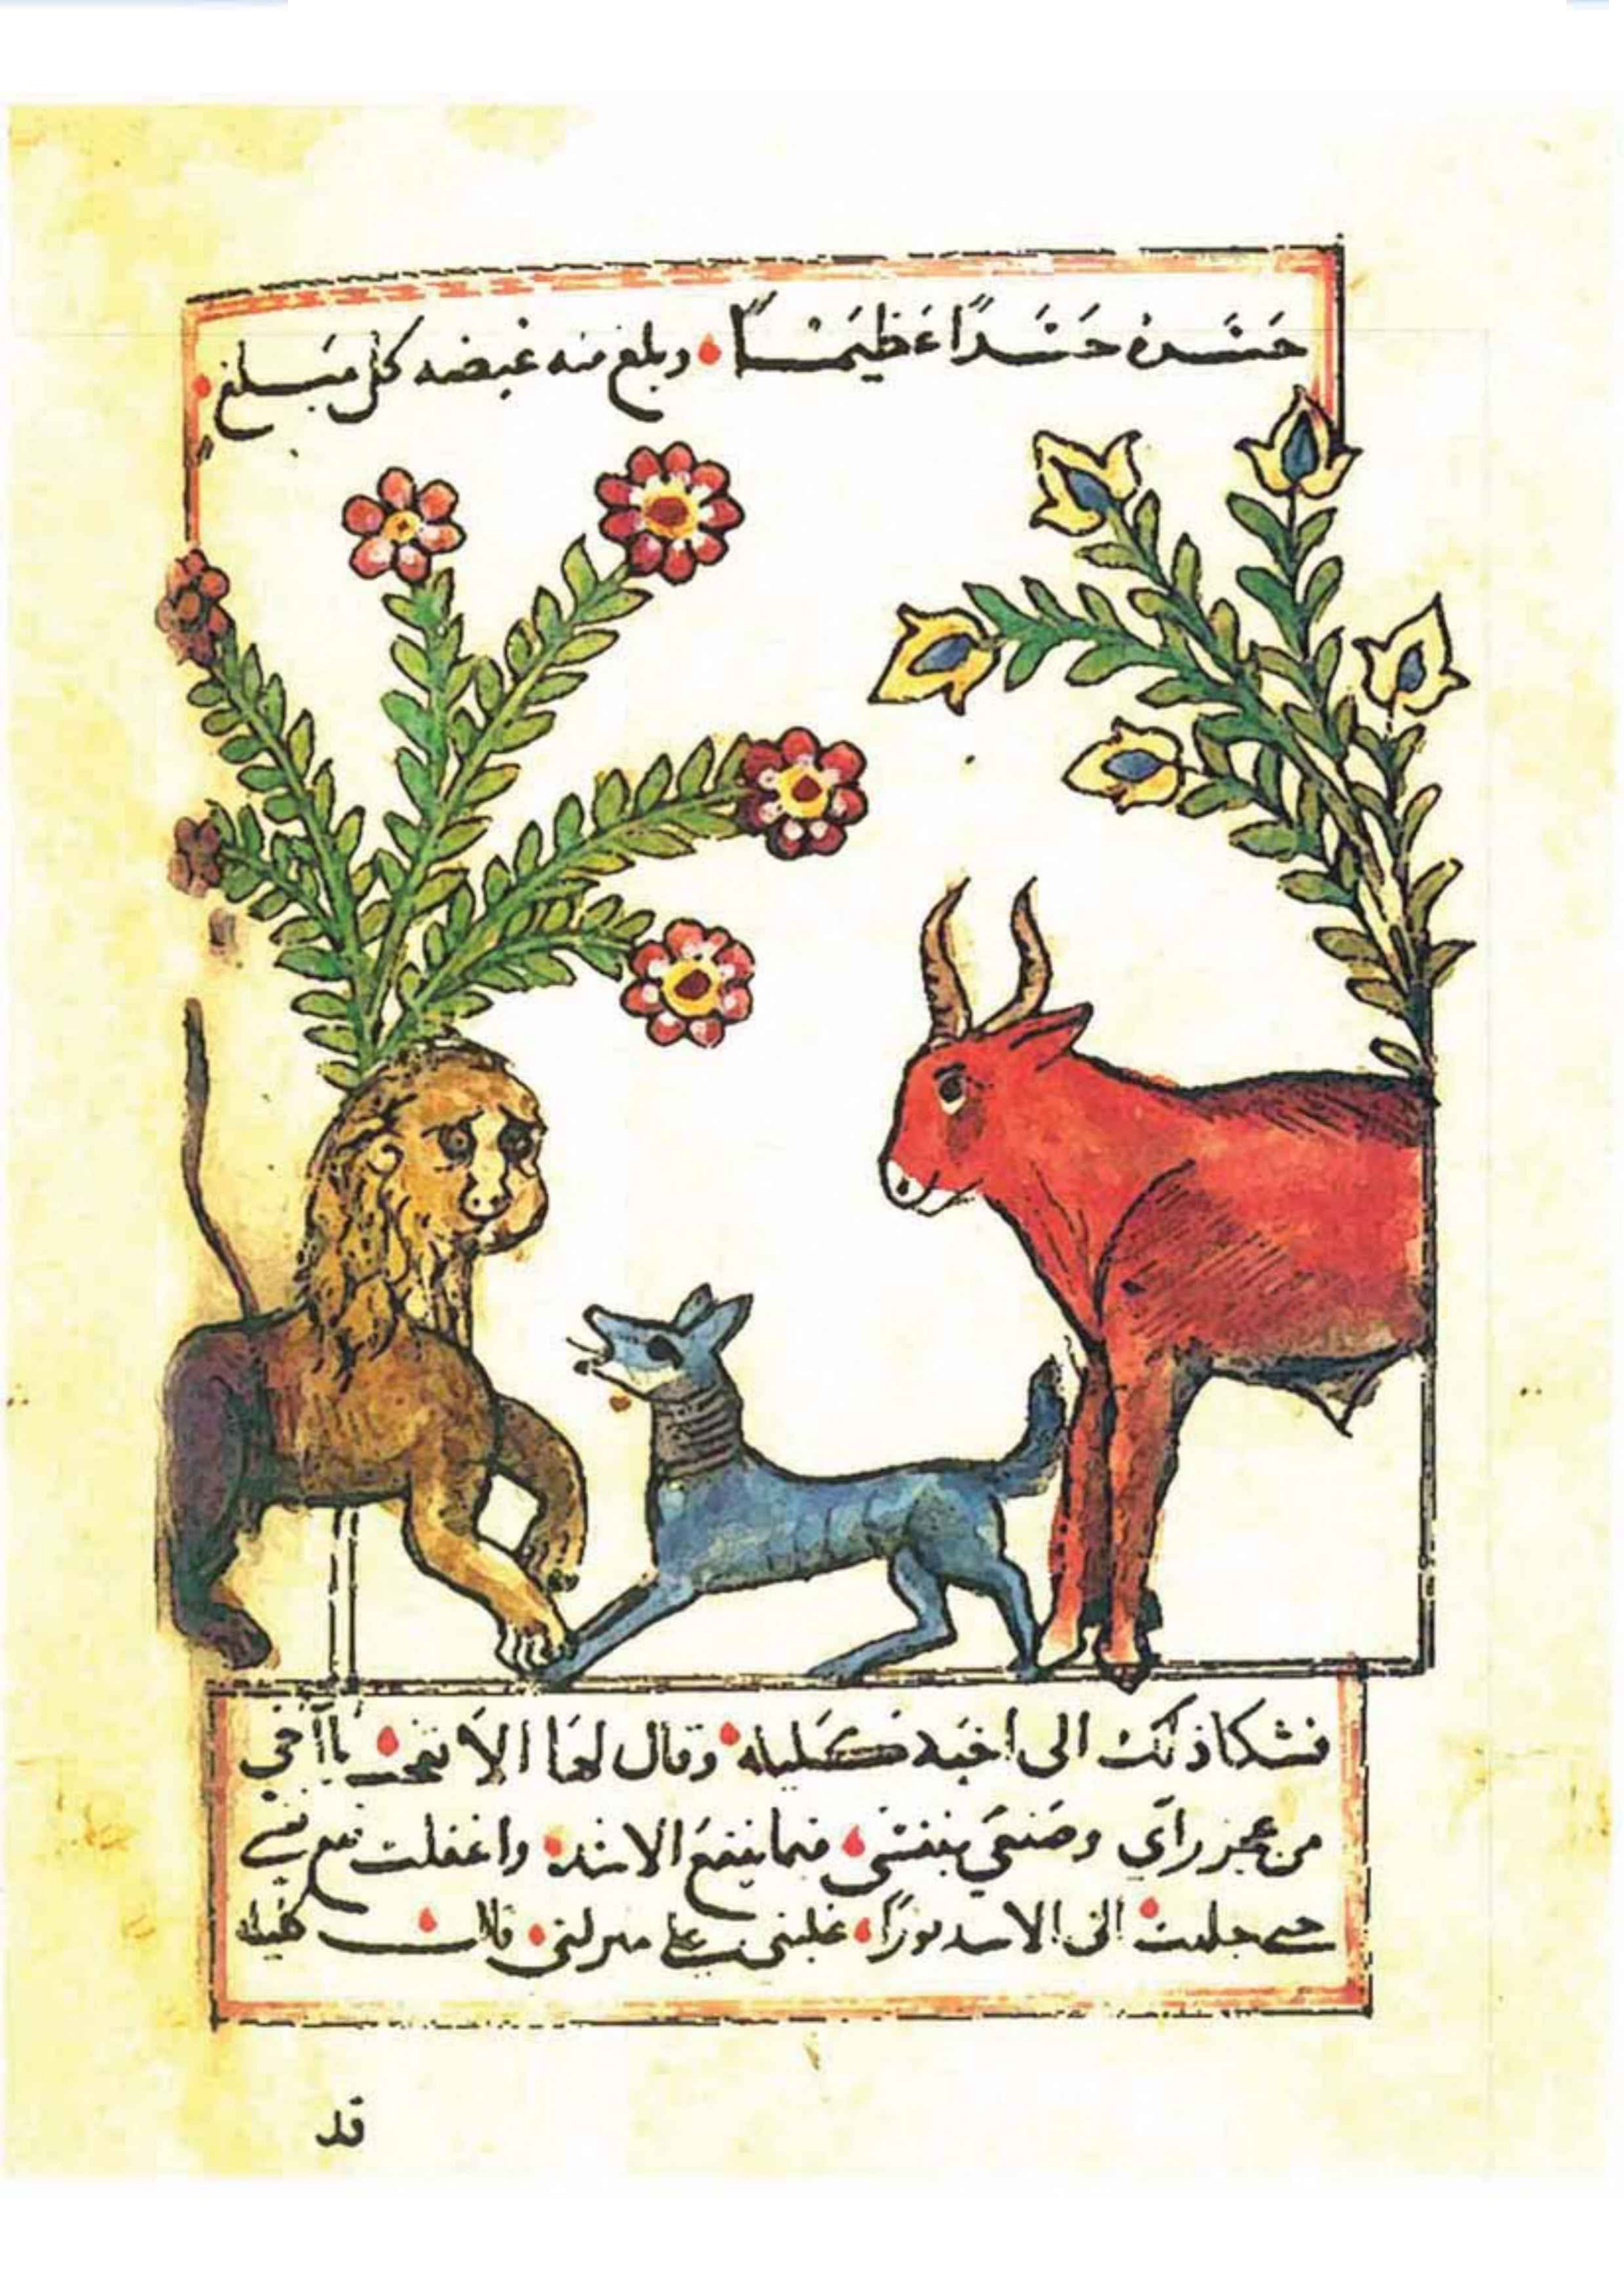 حسده حسدًا عَظيمًا وبلغ منه غيضه كل مَبلغ
فشكا ذلك الى اخيه كليله وقال لها الا تعجب يا آخي
من عجز راي وصنعي بنفسي فيما ينفع الاسد واغفلت نفع نفسي
حتى جلبت الى الاسد ثورًا غلبني على منزلتي قالت كليله
قد